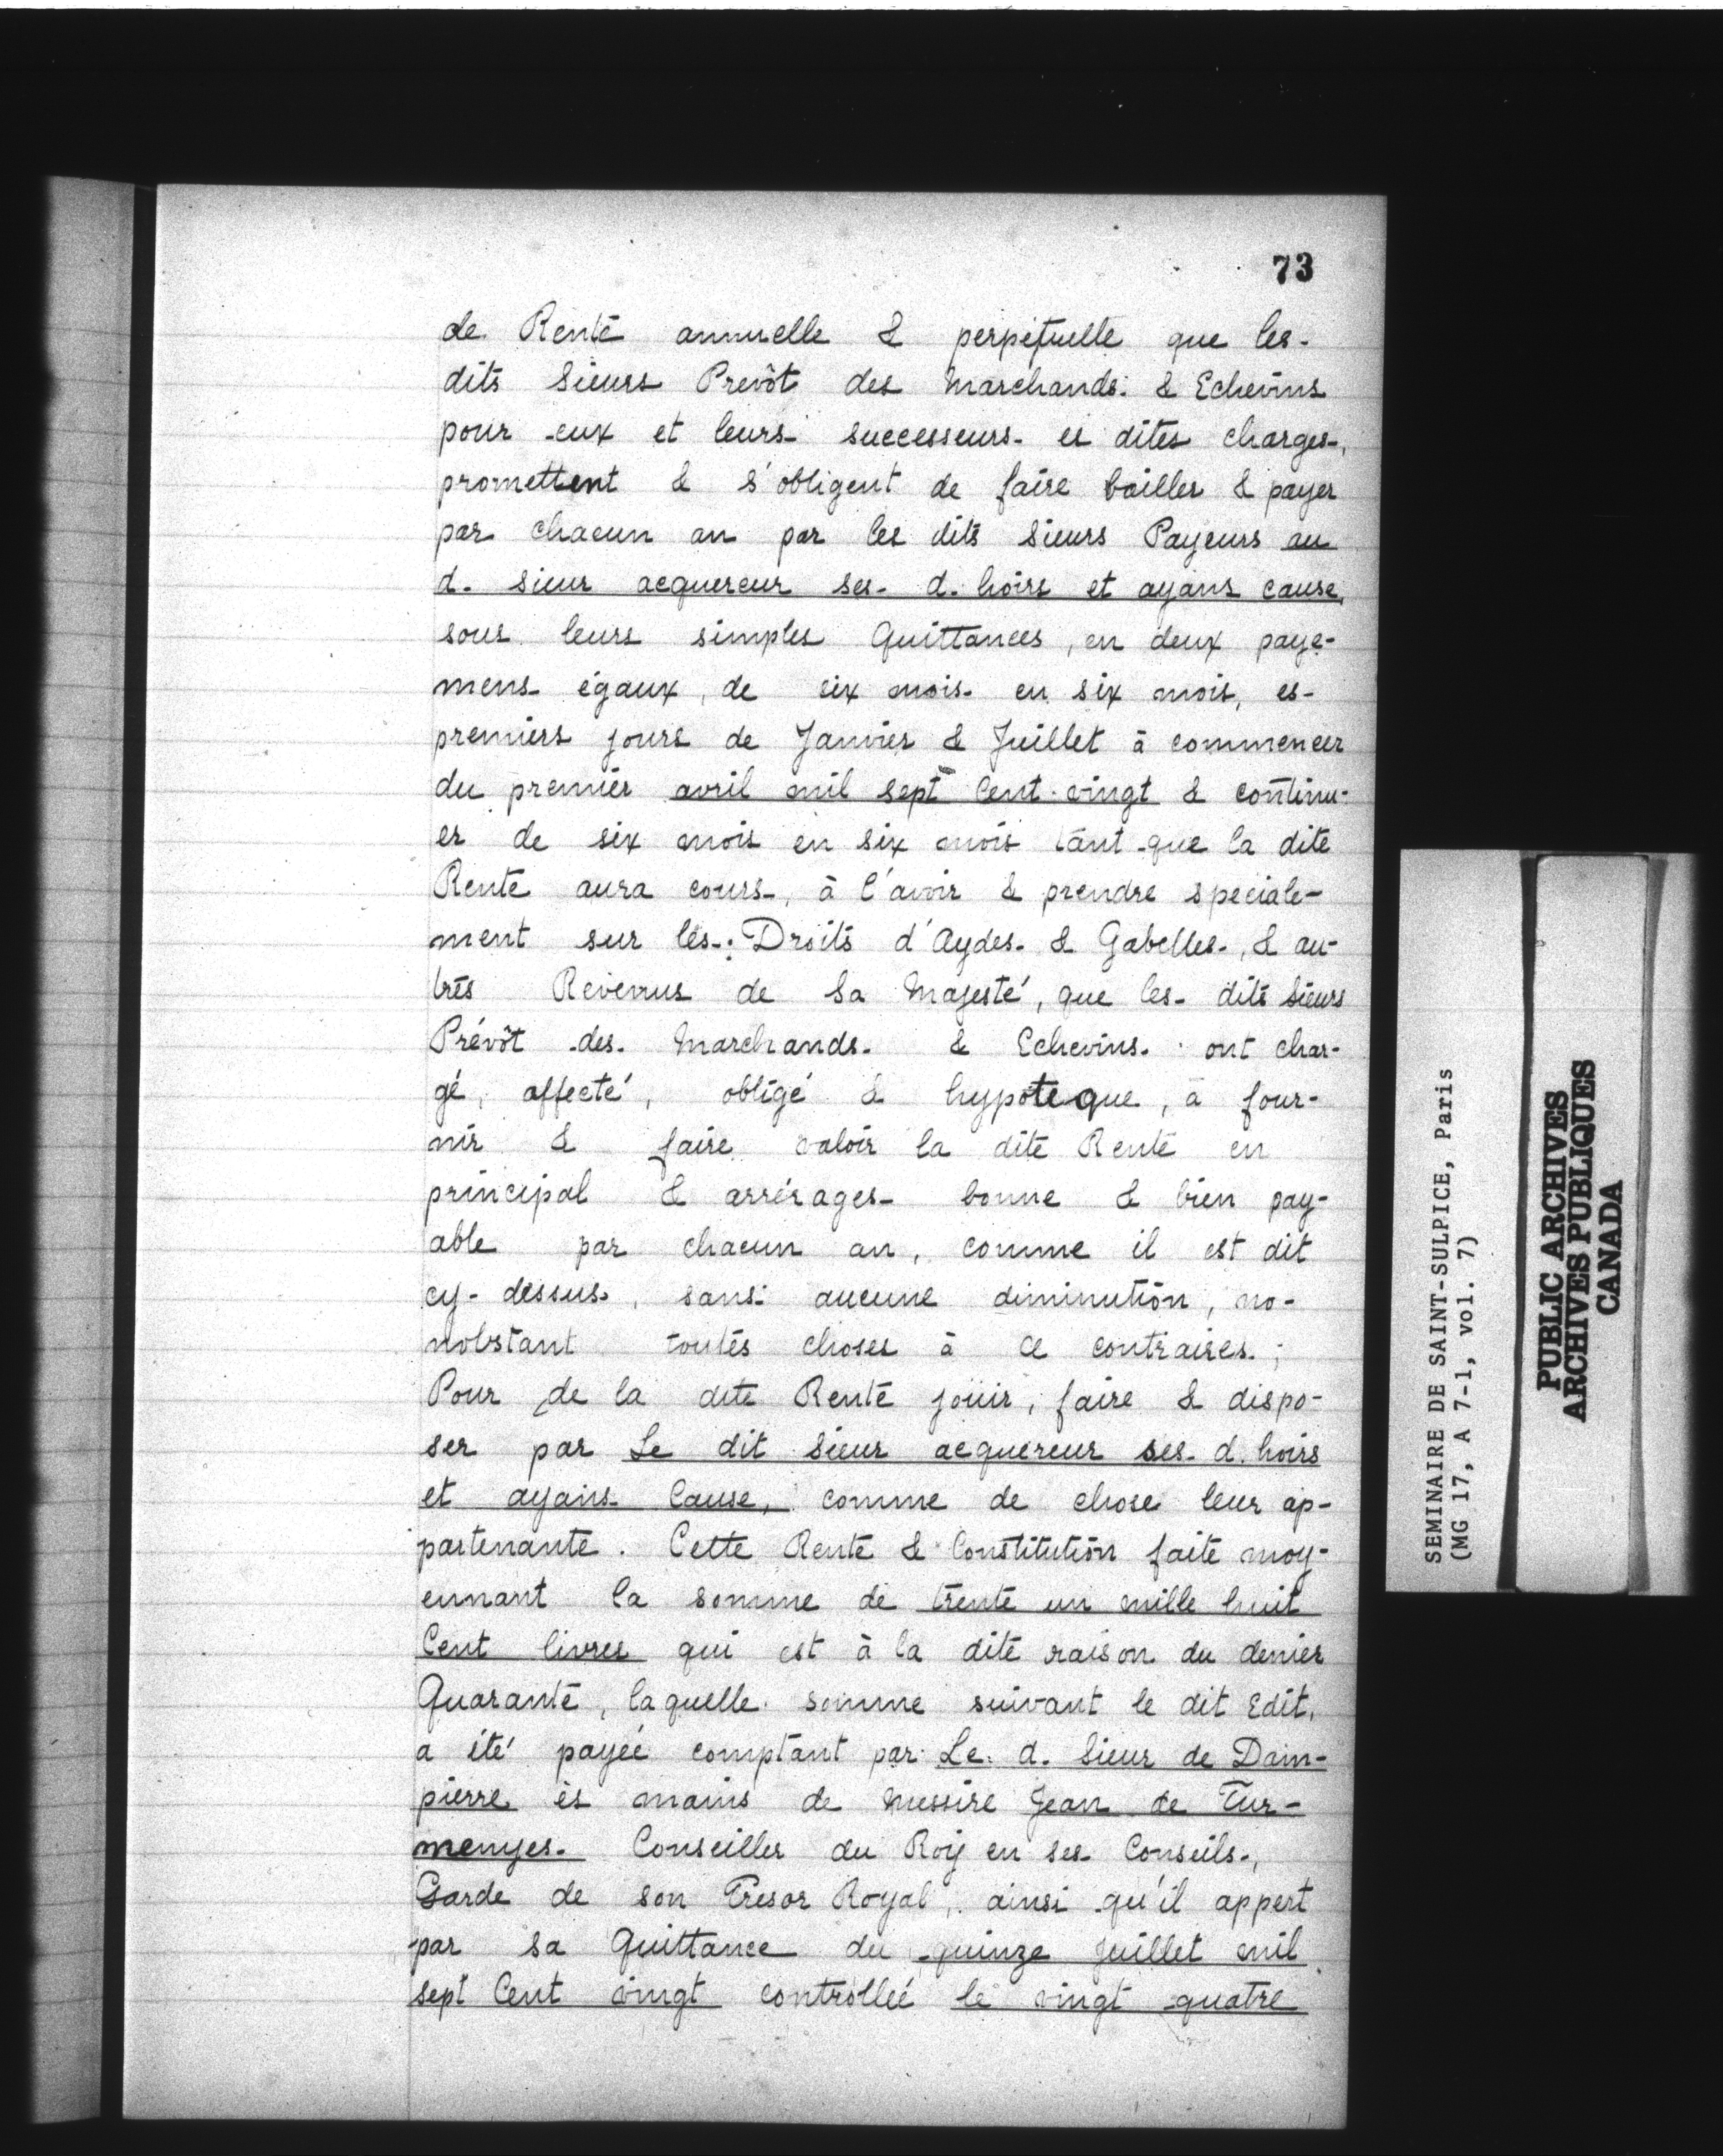 73
de Rente annuelle & perpetuelle que les-
dits Sieurs Prevôt des Marchands & Echevins
pour eux et leurs successeurs es dites charges,
promettent & s'obligent de faire bailler & payer
par chacun an par les dits Sieurs Payeurs au
d. sieur acquereur ses d. hoirs et ayans cause,
sous leurs simples Quittances, en deux paye-
mens égaux, de six mois en six mois, es-
premiers jours de Janvier & Juillet à commencer
du premier avril mil sept cent vingt & continu-
er de six mois en six mois tant que la dite
Rente aura cours, à l'avoir & prendre speciale-
ment sur les Droits d'Aydes & Gabelles, & au-
tres Revenus de Sa Majesté, que les dits Sieurs
Prévôt des Marchands & Echevins ont char-
gé, affecté, obligé & hypoteque, à four-
nir & faire valoir la dite Rente en
principal & arrérages bonne & bien pay-
able par chacun an, comme il est dit
cy-dessus, sans aucune diminution, no-
nobstant toutes choses à ce contraires;
Pour de la dite Rente jouir, faire & dispo-
ser par Le dit Sieur acquereur ses d. hoirs
et ayans Cause, comme de chose leur ap-
partenante. Cette Rente & Constitution faite moy-
ennant la somme de trente un mille huit
Cent livres qui est à la dite raison du denier
Quarante, laquelle somme suivant le dit Edit,
a été payée comptant par Le d. Sieur de Dam-
pierre ès mains de Messire Jean de Tur-
menyes Conseiller du Roy en ses Conseils,
Garde de son Tresor Royal, ainsi qu'il appert
par sa Quittance du quinze juillet mil
sept Cent vingt controllée le vingt quatre
SEMINAIRE DE SAINT-SULPICE, Paris
(MG 17, A 7-1, vol. 7)
PUBLIC ARCHIVES
ARCHIVES PUBLIQUES
CANADA